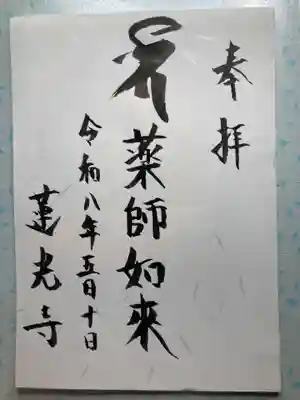 奉拝
薬師如來
令和八年五月十日
蓮光寺